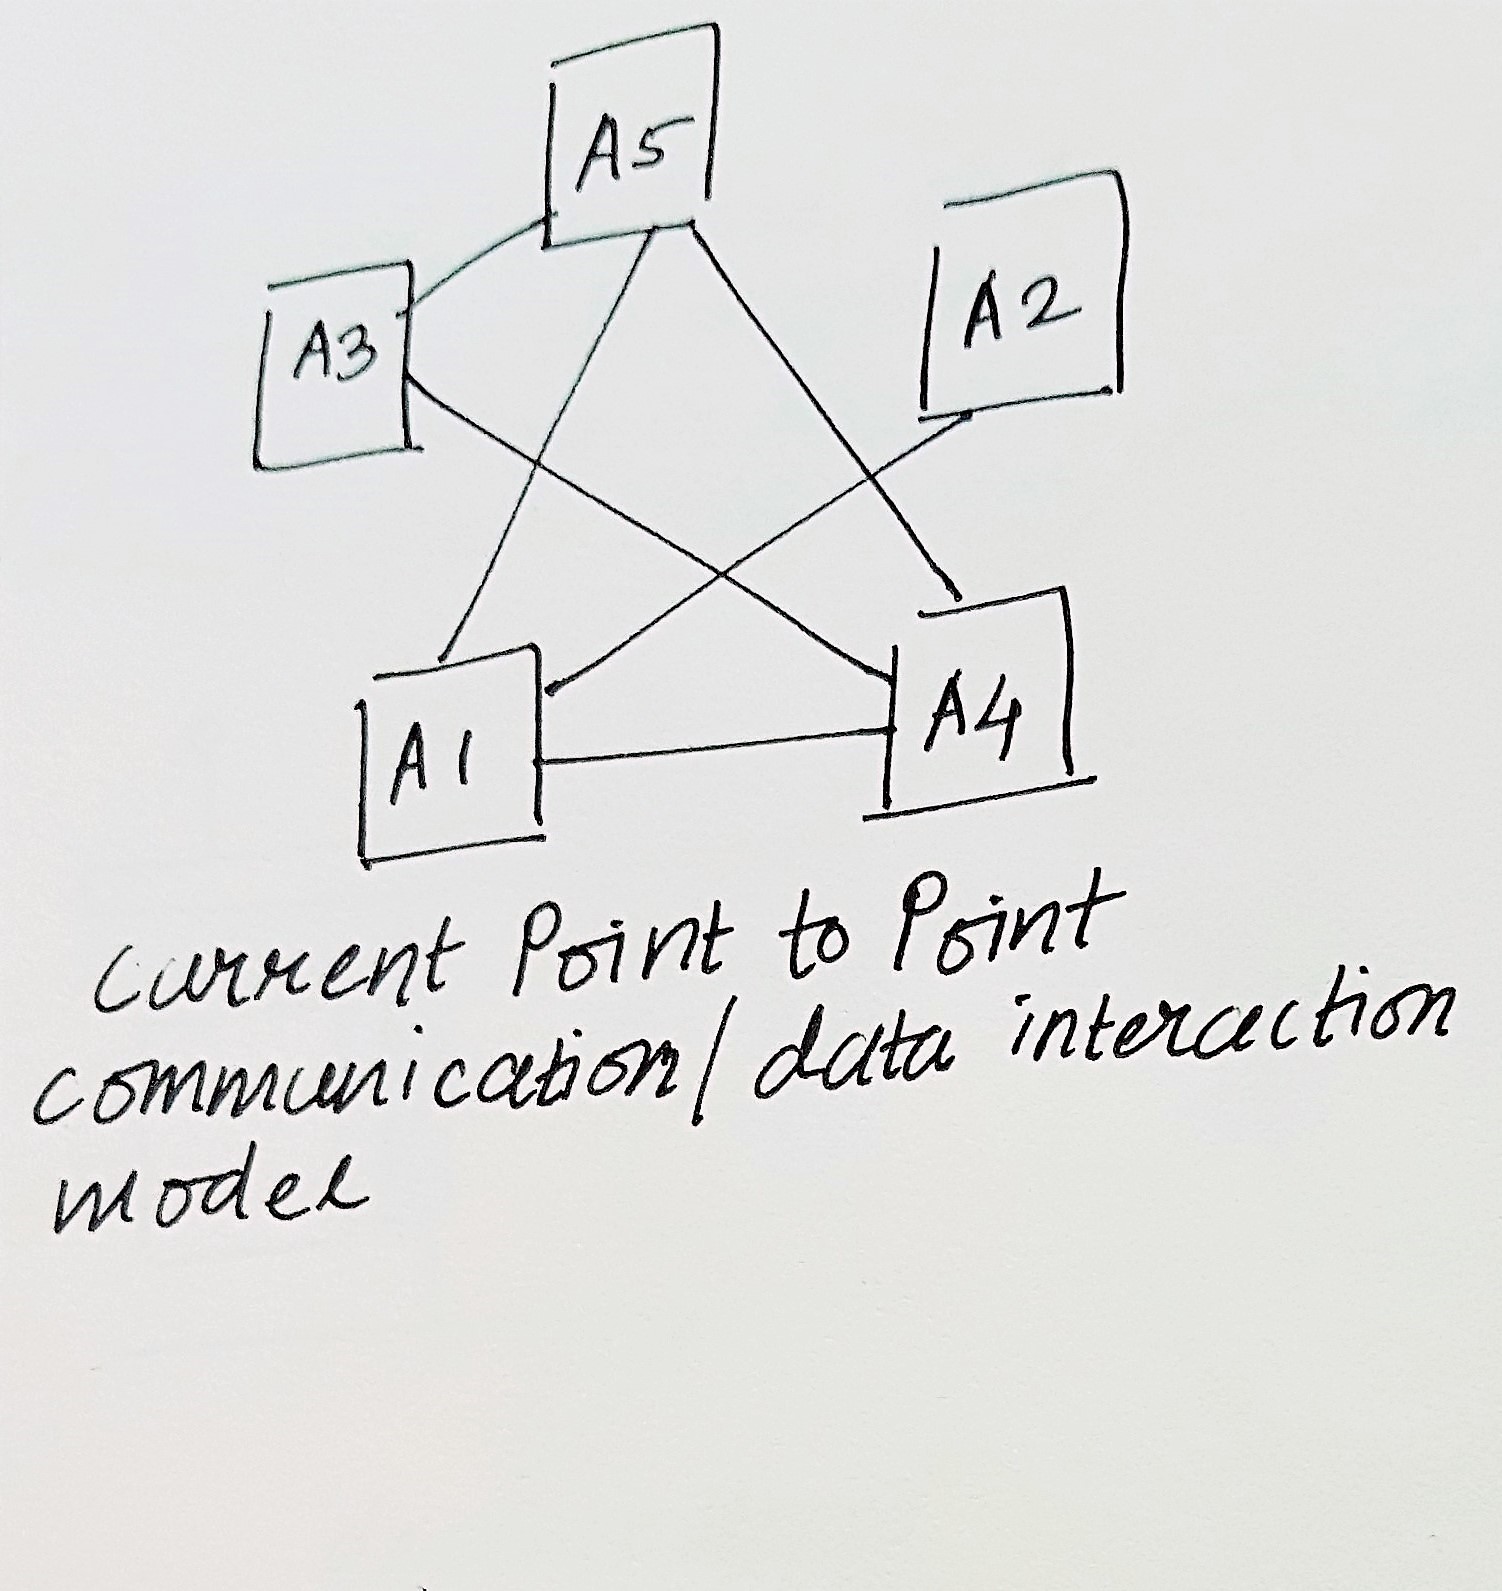 A5
A2
A3
A4
A1
Current Point to Point
communication/ data interaction
model